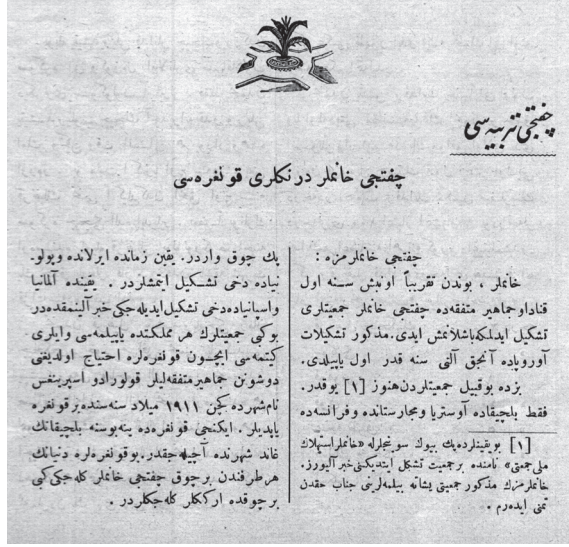 چفتجی تربیه‌سی
چفتجی خانملر درنكلری قونفره‌سی
چفتجی خانملرمزه :
خانملر ، بوندن تقریباً اونبش سنه اول
قنادا و جماهیر متفقه‌ده چفتجی خانملر جمعیتلری
تشكیل ایدلكه باشلانمش ایدی. مذكور تشكیلات
آوروپاده آنجق آلتی سنه قدر اول یاپیلدی.
بزده بوقبیل جمعیتلردن هنوز [۱] یوقدر.
فقط بلچیقاده آوستریا و مجارستانده و فرانسه‌ده
[۱] بویقینلرده‌پك بیوك سوینجلرله «خانملر استهلاك
ملی جمعیتی» نامنده بر جمعیت تشكل ایتدیكنی خبر آلیورز.
خانملرمزك مذكور جمعیتی یشاته بیلمه‌لرینی جناب حقدن
تمنی ایده‌رم .
پك چوق واردر. یقین زمانده ایرلانده و پولو-
نیاده دخی تشكیل ایتمشلردر . یقینده آلمانیا
و اسپانیاده‌دخی تشكیل ایدیله‌جكی خبر آلینمقده‌در
بوكبی جمعیتلرك هر مملكتده یاپیلمه‌سی و ایلری
كیتمه‌سی ایچون قونفره‌لره احتیاج اولدیغنی
دوشونن جماهیر متفقه‌لیلر قولورادو اسپرینغس
نام‌شهرده كچن ۱۹۱۱ میلاد سنه‌سنده بر قونفره
یاپدیلر . ایكنجی قونفره‌ده ینه بوسنه بلچیقانك
غاند شهرنده آچیله‌جقدر. بوقونفره‌لره دنیانك
هر طرفندن بر چوق چفتجی خانملر كله‌جكی كبی
بر چوقده ارككلر كله‌جكلردر .